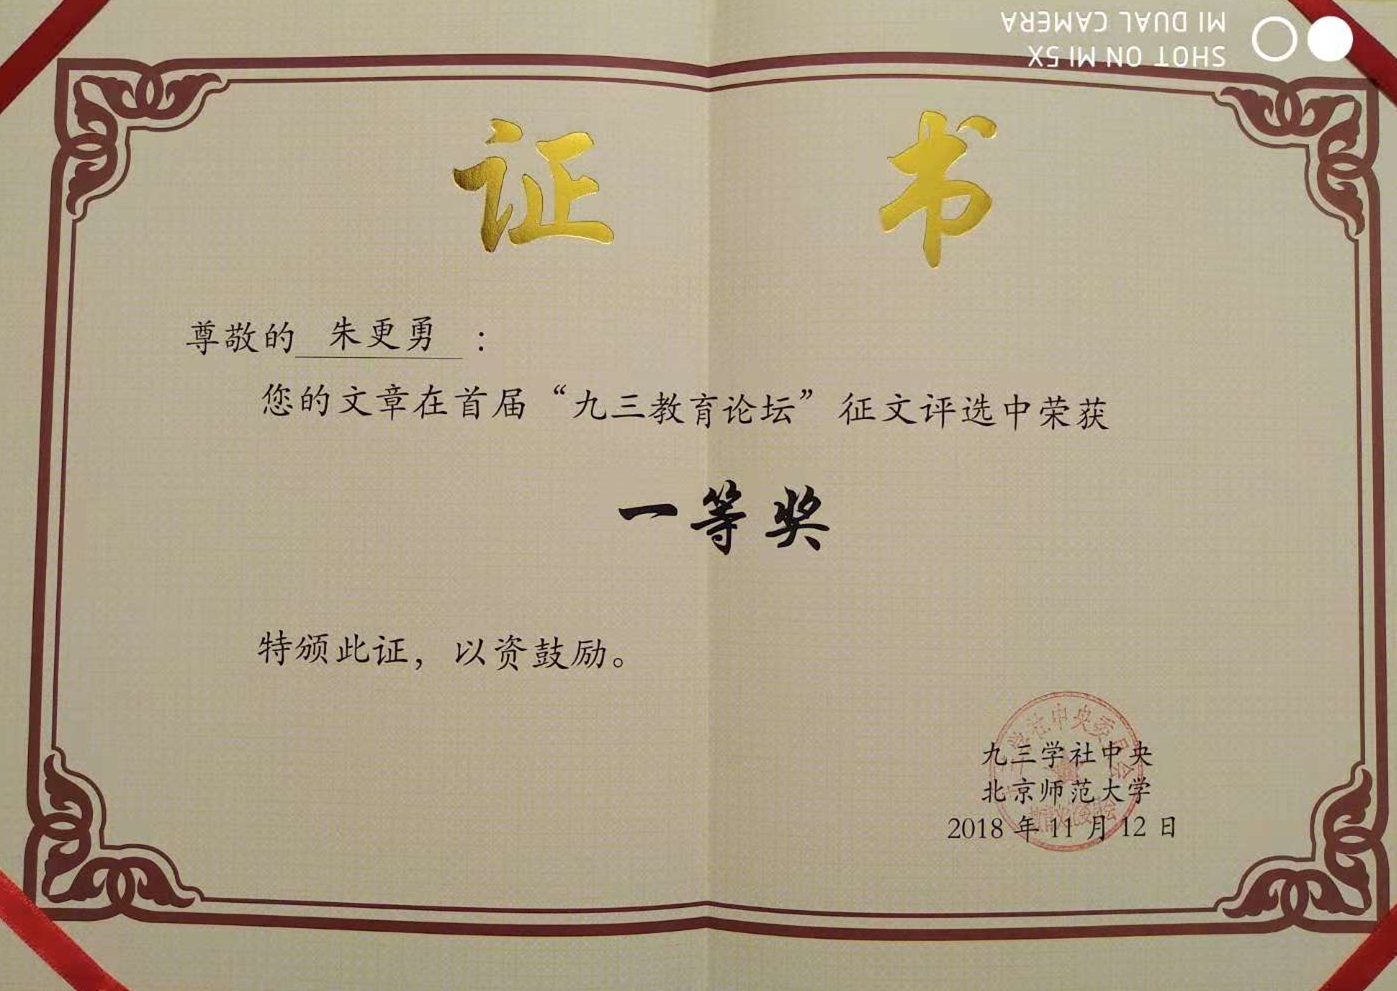 SHOT ON MI 5X
MI DUAL CAMERA
证书
尊敬的 朱更勇 ：
您的文章在首届“九三教育论坛”征文评选中荣获
一等奖
特颁此证，以资鼓励。
九三学社中央
北京师范大学
2018 年 11 月 12 日